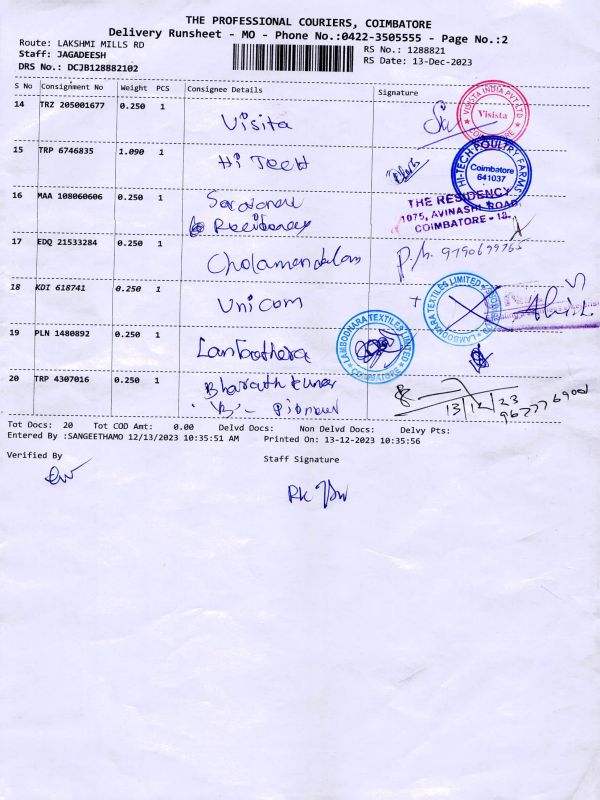 THE PROFESSIONAL COURIERS, COIMBATORE
Delivery Runsheet - MO - Phone No.:0422-3505555 - Page No.:2
Route: LAKSHMI MILLS RD
RS No.: 1288821
Staff: JAGADEESH
RS Date: 13-Dec-2023
DRS No.: DCJB128882102
S No Consignment No Weight PCS Consignee Details Signature
14 TRZ 205001677 0.250 1 Visita
VISISTA INDIA PVT LTD
Visista
15 TRP 6746835 1.090 1 Hi Teeh
HI-TECH POULTRY FARMS
Coimbatore
641037
16 MAA 108060606 0.250 1
Residency
THE RESIDENCY
1075, AVINASHI ROAD,
COIMBATORE - 18.
17 EDQ 21533284 0.250 1 Cholamandalam
P.M. 9790699765
18 KDI 618741 0.250 1 Unicom
LAMBODHARA TEXTILES LIMITED
19 PLN 1480892 0.250 1 Lambothera
LAMBODHARA TEXTILES LIMITED
20 TRP 4307016 0.250 1 Bharath kumar
13/12/23
Tot Docs: 20 Tot COD Amt: 0.00 Delvd Docs: Non Delvd Docs: Delvy Pts:
Entered By :SANGEETHAMO 12/13/2023 10:35:51 AM Printed On: 13-12-2023 10:35:56
Verified By
Staff Signature